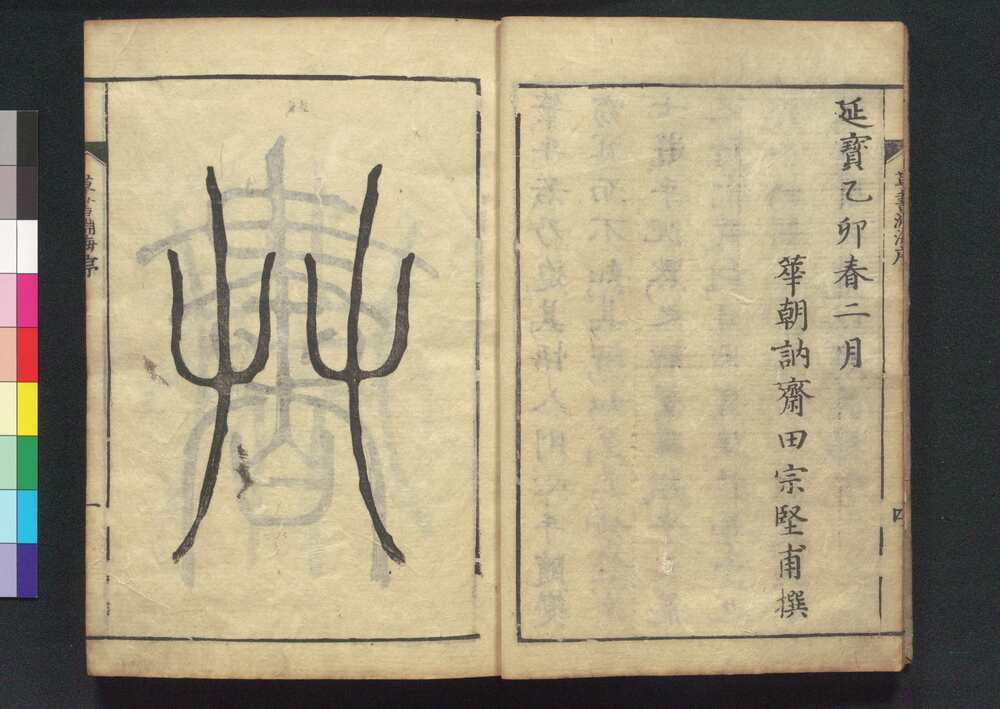 延寶乙卯春二月
華朝訥齋田宗堅甫撰
艸